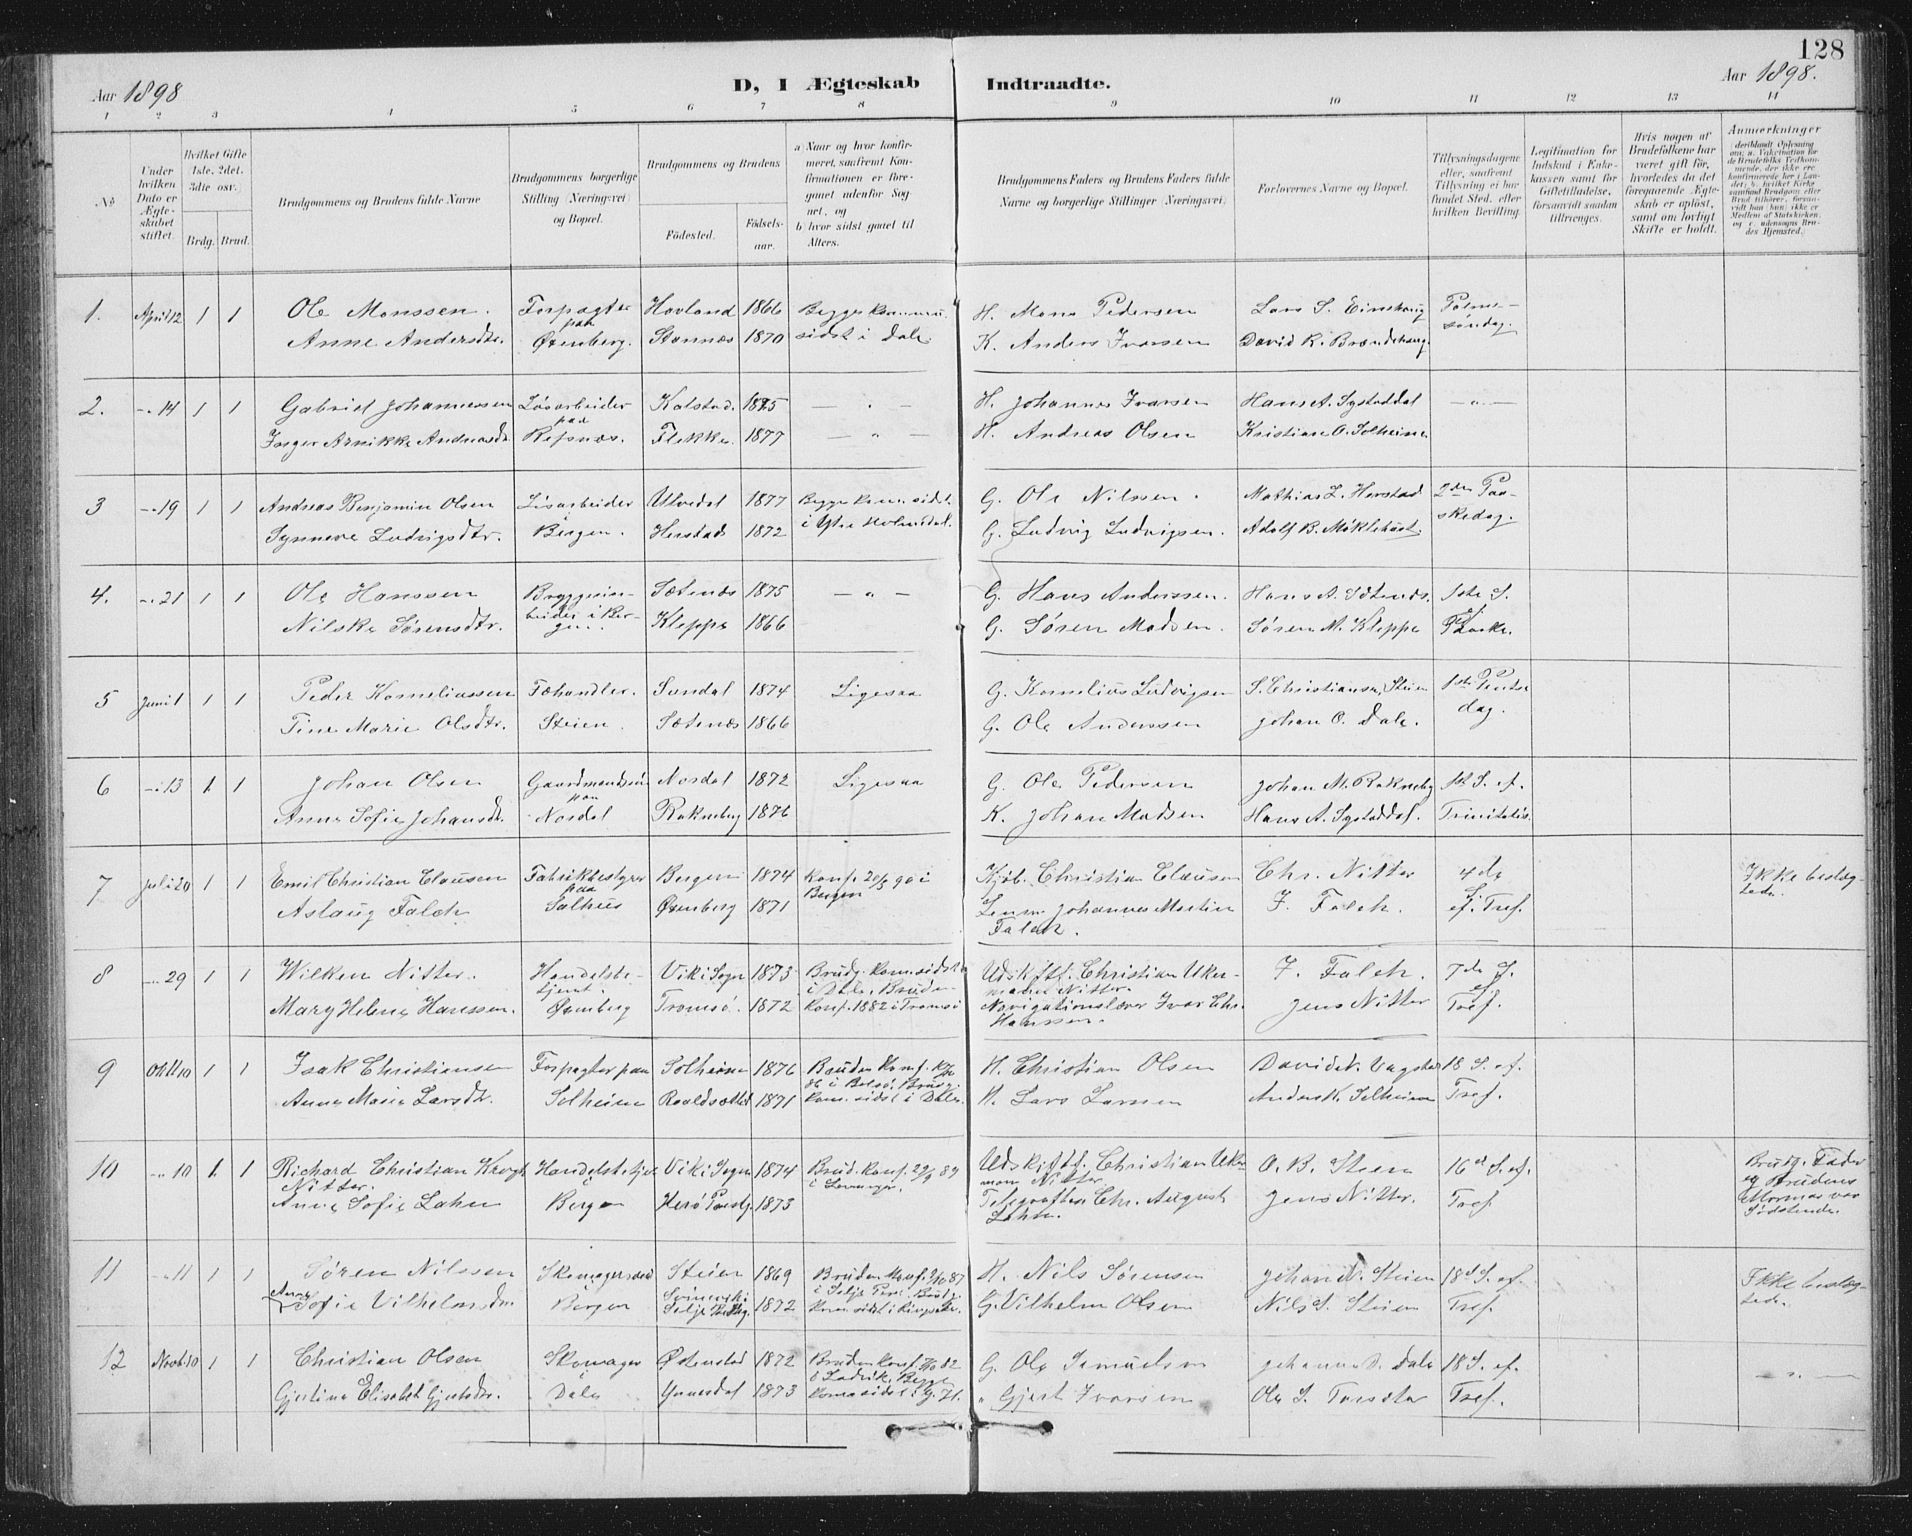 128
Aar 1898
D, I Ægteskab Indtraadte.
Aar 1898.
1 2 3 4 5 6 7 8 9 10 11 12 13 14
No
Under hvilken Dato er Ægteskabet stiftet.
Hvilket Gifte 1ste, 2det, 3die osv.
Brdg. Brud.
Brudgommens og Brudens fulde Navne
Brudgommens borgerlige Stilling (Næringsvei) og Bopæl.
Brudgommens og Brudens
Fødested.
Fødselsaar.
a Naar og hvor konfirmeret, saafremt Konfirmationen er foregaaet udenfor Sognet, og
b hvor sidst gaaet til Alters.
Brudgommens Faders og Brudens Faders fulde Navne og borgerlige Stillinger (Næringsvei)
Forlovernes Navne og Bopæl.
Tillysningsdagene eller, saafremt Tillysning ei har fundet Sted, efter hvilken Bevilling.
Legitimation for Indskud i Enkekassen samt for Giftetilladelse, forsaavidt saadan tiltrænges.
Hvis nogen af Brudefolkene har været gift før, hvorledes da det foregaaende Ægteskab er opløst, samt om lovligt Skifte er holdt.
Anmærkninger
1. April 12 1 1 Ole Monssen. Forpagter paa Øenberg. Hovland 1866 Begge kommu. sidst i Dale. H. Mons Pedersen Lars S. Palmesøndag.
Anne Andersdtr. Stannæs 1870 K. Anders Ivarsen David R.
2. -"- 14 1 1 Gabriel Johannessen Løsarbeider paa Refsnæs. Kolstad. 1875 — " — H. Johannes Ivarsen Hans A. Systaddal — " —
Inger Andreasdtr. Flekke. 1877 — " — H. Andreas Olsen Kristian O. Solheim
3 -"- 19 1 1 Andreas Benjamin Olsen Løsarbeider Bergen. 1877 Begge kom. sidst i Ytre Holmedal. G. Ole Nilssen. Mathias L. Herstad 2den Paaskedag.
Synneve Ludvigsdtr. Herstad 1872 G. Ludvig Ludvigsen. Adolf B. Møklebust.
4. -"- 21 1 1 Ole Hanssen Bryggeriarbeider i Bergen. Sætenæs 1875 — " — G. Hans Anderssen. Hans A. Sætenæs. 1ste S. ef. Paaske.
Nilske Sørensdtr. Kleppe 1866 G. Søren Madsen. Søren M. Kleppe
5 Juni 1 1 1 Peder Korneliussen Fæhandler. Steien. Sundal 1874 Ligesaa G. Kornelius Ludvigsen S. Christiansen, Steien 1ste Pintsedag.
Tine Marie Olsdtr. Sætenæs 1866 G. Ole Anderssen Johan O. Dale.
6 -"- 13 1. 1 Johan Olsen Gaardmandssøn paa Nordal Nordal 1872 Ligesaa G. Ole Pedersen Johan M. Rakneberg 1st S. ef. Trinitatis.
Anne Sofie Johansdtr. Rakneberg 1876 K. Johan Madsen Hans A. Systaddal.
7 Juli 20 1 1 Emil Christian Clausen Fabrikbestyrer paa Salhus Bergen 1874 Konf. 20/5 90 i Bergen Kjøb. Christian Clausen Chr. Nitter 4de S. ef. Tref. Ikke beslægtede.
Aslaug Falch Øenberg 1871 Johannes Martin Falch. J. Falch.
8 -"- 29 1 1 Wilken Nitter. Handelsbetjent. Vik i Sogn 1873 Brudg. kom. sidst i Dale. Bruden konf. 1882 i Tromsø Udskftf. Christian Ukermann Nitter. J. Falch. 7de S. ef. Tref.
Mary Helene Hanssen. Tromsø. 1872 Navigationslærer Ivar Chr. Hanssen. Jens Nitter
9 Oktb 10 1 1 Isak Christiansen Forpagter paa Solheim Solheim 1876 H. Christian Olsen David Vagstad 18 S. ef. Tref.
Anne Marie Larsdtr. 1871 kom. sidst i Dale. H. Lars Larsen Anders K. Solheim
10 -"- 10 1. 1 Richard Christian Krogh Nitter. Handelsbetjent i Bergen Vik i Sogn 1874 Brud. konf. 89 Udskiftf. Christian Ukermann Nitter O. B. Steen 16de S. ef. Tref. Brudg. Fader og Brudens Mormor var Sødskende.
Anne Sofie Lahn Herø Præstg. 1873 Chr. August Lahn. Jens Nitter.
11 -"- 11 1 1 Søren Nilssen Skomagersvend Bergen Steien 1869 Bruden konf. 87 H. Nils Sørensen Johan N. Steien 18d S. ef. Tref. Ikke beslægtede.
Anne Sofie Vilhelmsdtr. Selje Præstg. 1872 G. Vilhelm Olsen Nils S. Steien
12 Novb. 10 1 1 Christian Olsen Skomager Dale Østenstad 1872 Bruden konf. i Ladvik. Begge kom. sidst i G. Ole Samuelsen Johannes D. Dale 18 S. ef. Tref. — " —
Gjertine Elisabet Gjertsdtr. Ynnesdal 1873 " Gjert Ivarsen Ole S.